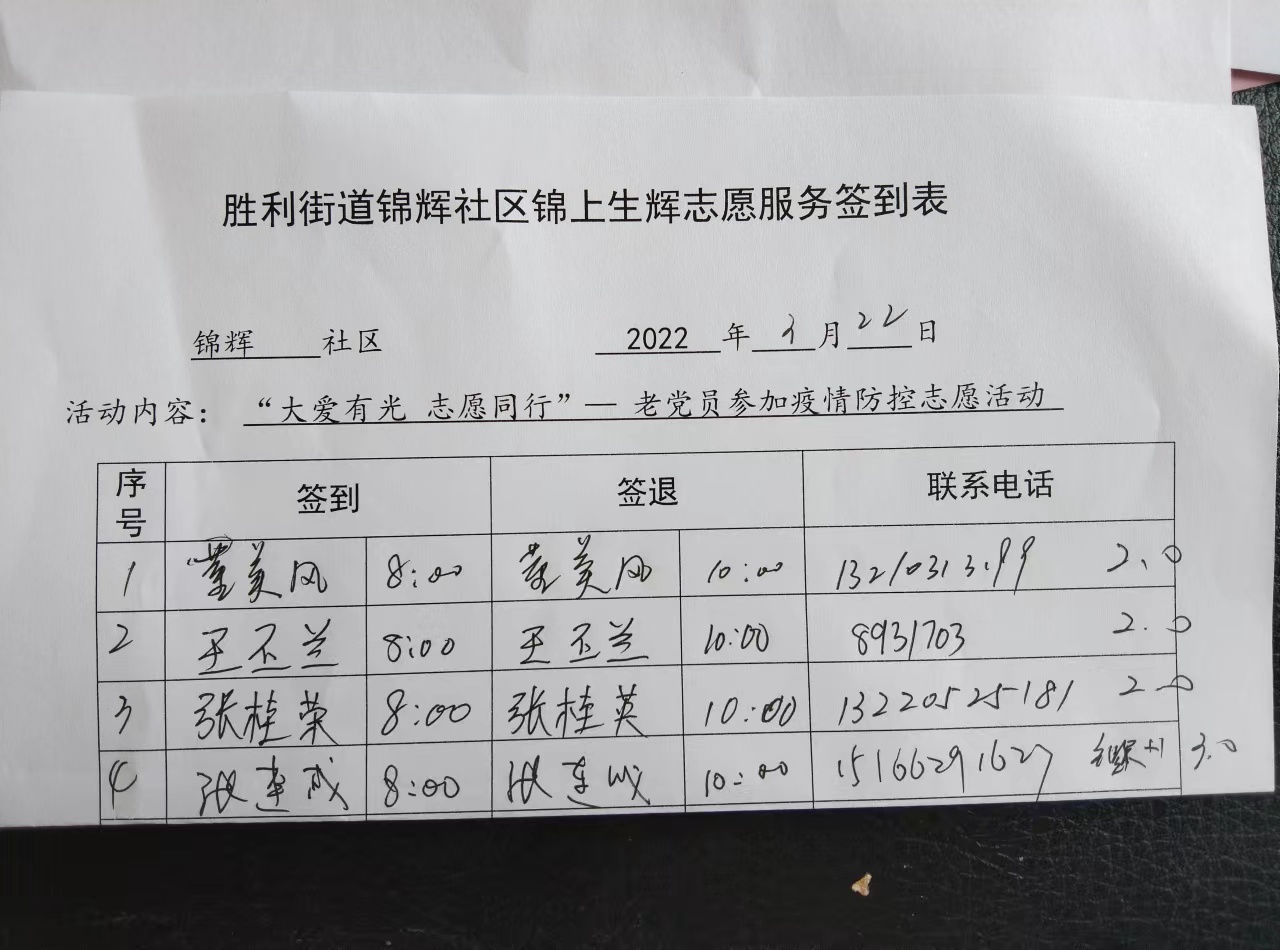 胜利街道锦辉社区锦上生辉志愿服务签到表
锦辉 社区 2022 年 3 月 22 日
活动内容: “大爱有光 志愿同行”— 老党员参加疫情防控志愿活动
序号 签到 签退 联系电话
1 董美风 8:00 董美风 10:00 2.0
2 王玉兰 8:00 王玉兰 10:00 8931703 2.0
3 张桂荣 8:00 张桂英 10:00 13220525181 2.0
4 张连成 8:00 张连成 10:00 15166291627 +1 3.0